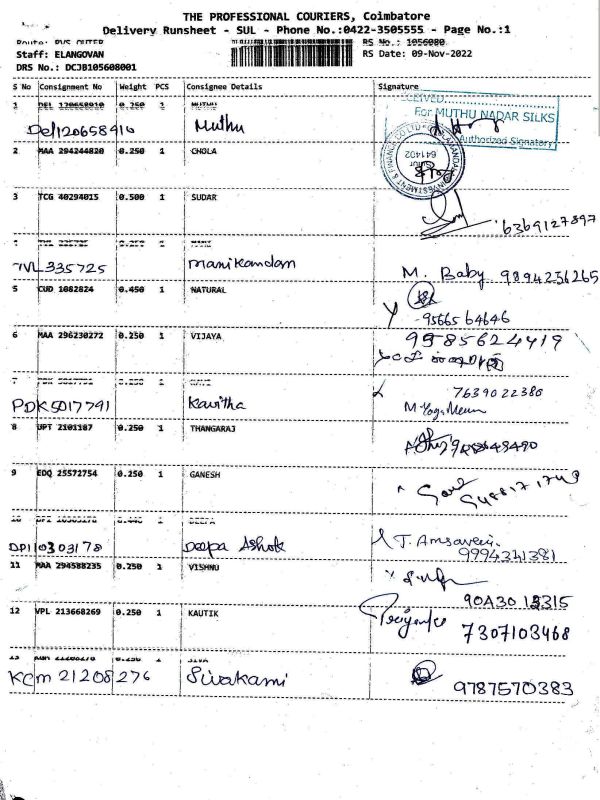 THE PROFESSIONAL COURIERS, Coimbatore
Delivery Runsheet - SUL - Phone No.:0422-3505555 - Page No.:1
Route: PVS OUTER RS No.: 1056080
Staff: ELANGOVAN RS Date: 09-Nov-2022
DRS No.: DCJB105608001
S No Consignment No Weight PCS Consignee Details Signature
1 DEL 120658910 0.250 1 MUTHU
RECEIVED
For MUTHU NADAR SILKS
Del120658910 Muthu
Authorized Signatory
2 MAA 294244820 0.250 1 CHOLA
INVESTMENT & FINANCE CO LTD
641402
3 TCG 40294015 0.500 1 SUDAR
6369127897
TVL 335725 manikandan M. Baby 9894256265
5 CUD 1082824 0.450 1 NATURAL
9566564646
6 MAA 296230272 0.250 1 VIJAYA 9585624419
7639022380
PDK5017791 Kavitha
8 UPT 2101187 0.250 1 THANGARAJ
9 EDQ 25572754 0.250 1 GANESH
10 DPI 10303178 0.440 1 DEEPA
DPI10303178 Deepa Ashok J. Amsaveni
9994341381
11 MAA 294588235 0.250 1 VISHNU
12 VPL 213668269 0.250 1 KAUTIK Priyanka
7307103468
13 KCM 21208276 0.250 1 SIVA
KCM 21208276 Sivakami 9787570383